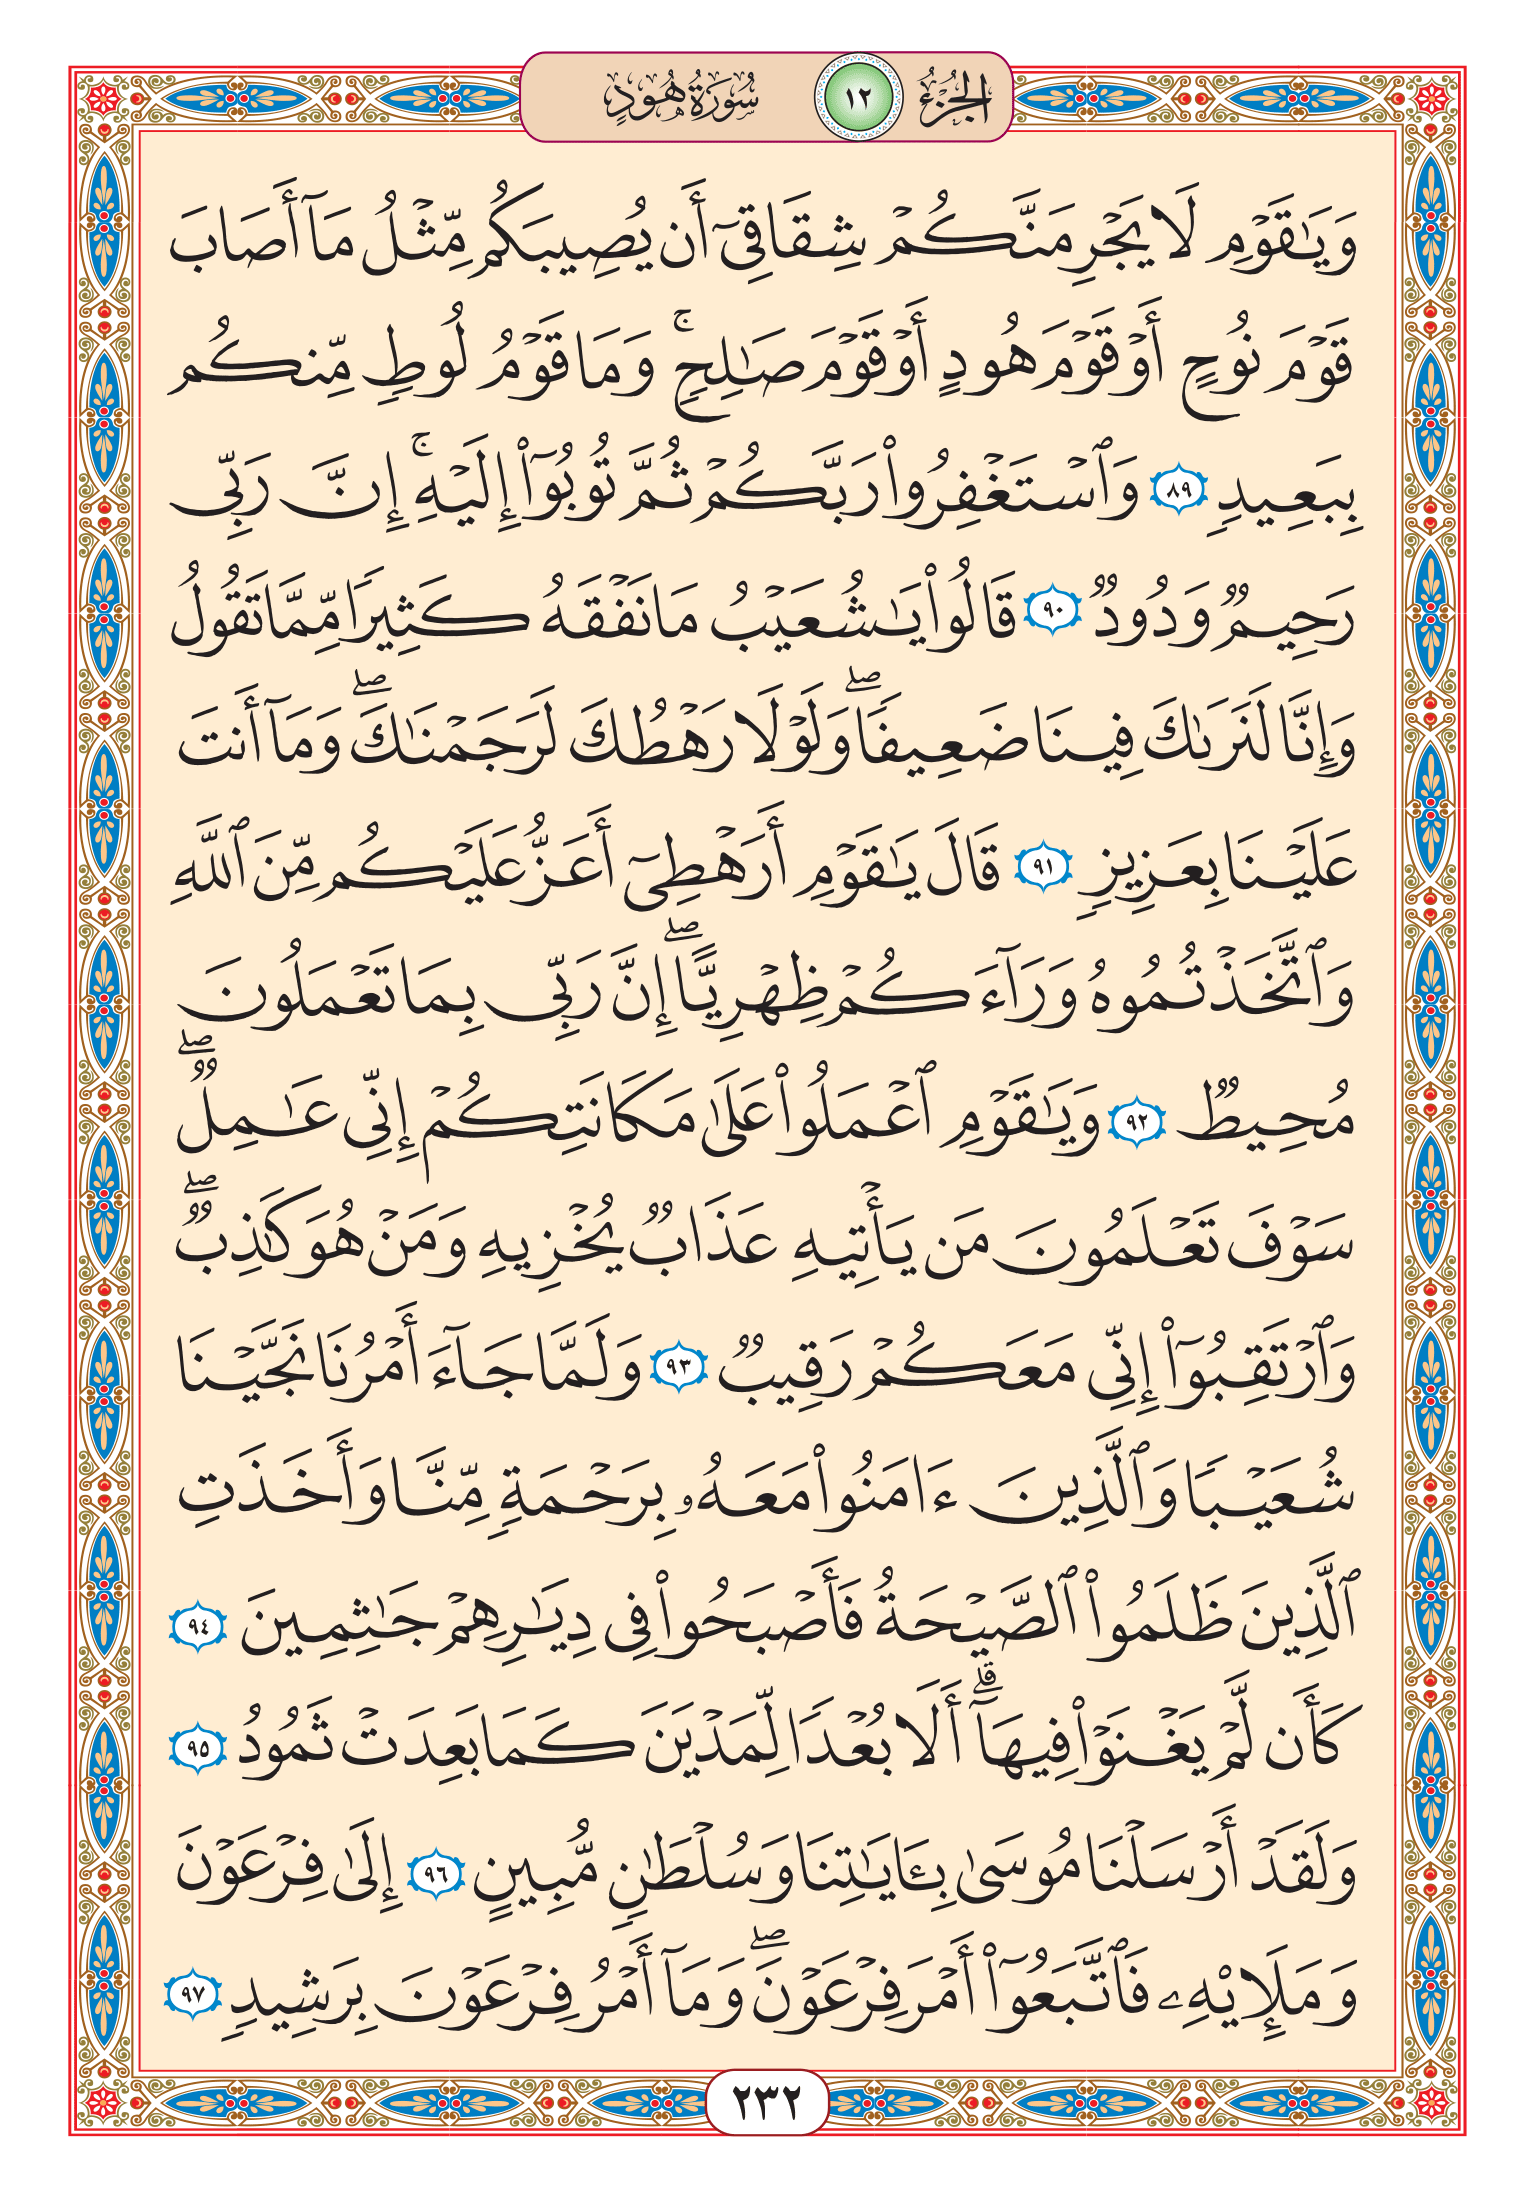 الجُزْءُ ١٢ سُورَةُ هُودٍ
وَيَٰقَوۡمِ لَا يَجۡرِمَنَّكُمۡ شِقَاقِيٓ أَن يُصِيبَكُم مِّثۡلُ مَآ أَصَابَ
قَوۡمَ نُوحٍ أَوۡ قَوۡمَ هُودٍ أَوۡ قَوۡمَ صَٰلِحٖۚ وَمَا قَوۡمُ لُوطٖ مِّنكُم
بِبَعِيدٖ ٨٩ وَٱسۡتَغۡفِرُواْ رَبَّكُمۡ ثُمَّ تُوبُوٓاْ إِلَيۡهِۚ إِنَّ رَبِّي
رَحِيمٞ وَدُودٞ ٩٠ قَالُواْ يَٰشُعَيۡبُ مَا نَفۡقَهُ كَثِيرٗا مِّمَّا تَقُولُ
وَإِنَّا لَنَرَىٰكَ فِينَا ضَعِيفٗاۖ وَلَوۡلَا رَهۡطُكَ لَرَجَمۡنَٰكَۖ وَمَآ أَنتَ
عَلَيۡنَا بِعَزِيزٖ ٩١ قَالَ يَٰقَوۡمِ أَرَهۡطِيٓ أَعَزُّ عَلَيۡكُم مِّنَ ٱللَّهِ
وَٱتَّخَذۡتُمُوهُ وَرَآءَكُمۡ ظِهۡرِيًّاۖ إِنَّ رَبِّي بِمَا تَعۡمَلُونَ
مُحِيطٞ ٩٢ وَيَٰقَوۡمِ ٱعۡمَلُواْ عَلَىٰ مَكَانَتِكُمۡ إِنِّي عَٰمِلٞۖ
سَوۡفَ تَعۡلَمُونَ مَن يَأۡتِيهِ عَذَابٞ يُخۡزِيهِ وَمَنۡ هُوَ كَٰذِبٞۖ
وَٱرۡتَقِبُوٓاْ إِنِّي مَعَكُمۡ رَقِيبٞ ٩٣ وَلَمَّا جَآءَ أَمۡرُنَا نَجَّيۡنَا
شُعَيۡبٗا وَٱلَّذِينَ ءَامَنُواْ مَعَهُۥ بِرَحۡمَةٖ مِّنَّا وَأَخَذَتِ
ٱلَّذِينَ ظَلَمُواْ ٱلصَّيۡحَةُ فَأَصۡبَحُواْ فِي دِيَٰرِهِمۡ جَٰثِمِينَ ٩٤
كَأَن لَّمۡ يَغۡنَوۡاْ فِيهَآۗ أَلَا بُعۡدٗا لِّمَدۡيَنَ كَمَا بَعِدَتۡ ثَمُودُ ٩٥
وَلَقَدۡ أَرۡسَلۡنَا مُوسَىٰ بِـَٔايَٰتِنَا وَسُلۡطَٰنٖ مُّبِينٍ ٩٦ إِلَىٰ فِرۡعَوۡنَ
وَمَلَإِيْهِۦ فَٱتَّبَعُوٓاْ أَمۡرَ فِرۡعَوۡنَۖ وَمَآ أَمۡرُ فِرۡعَوۡنَ بِرَشِيدٖ ٩٧
٢٣٢